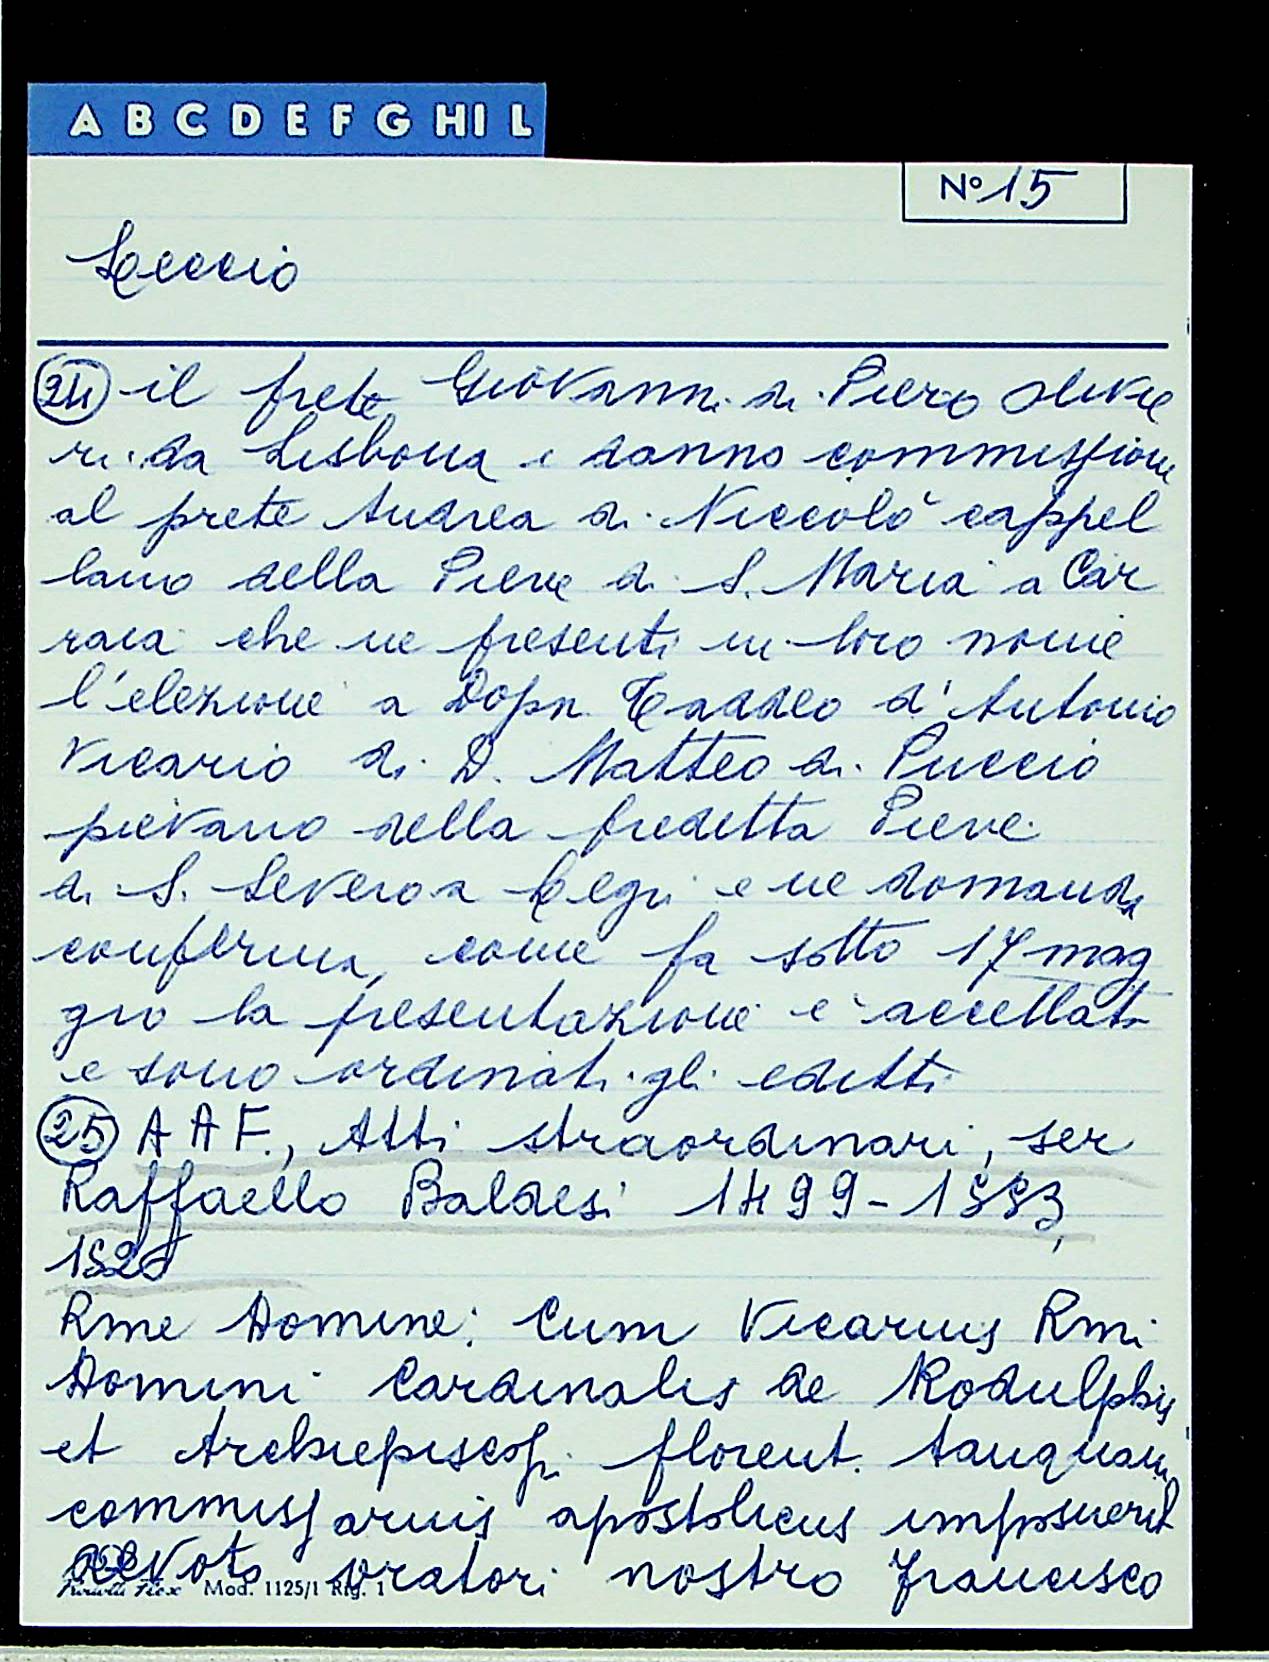 A B C D E F G HI L
N° 15
Leccio
(24) il prete Giovanni di Piero Olivie
ri da Lisbona e danno commissione
al prete Andrea di Niccolò cappel
lano della Pieve di S. Maria a Car
raia che ne presenti in loro nome
l'elezione a Dopn. Taddeo d'Antonio
Vicario di D. Matteo di Puccio
pievano della predetta Pieve
di S. Severo a Legri e ne domandi
conferma, come fa sotto 17 mag
gio la presentazione è accettata
e sono ordinati gli editti
(25) A A F., Atti straordinari, ser
Raffaello Baldesi 1499-1553,
152
Rme Domine; Cum Vicarius Rmi
Domini Cardinalis de Rodulphis
et Archiepiscopi florent. tanquam
commissarius apostolicus imposuerit
devoto oratori nostro Francisco
Mod. 1125/1 Rig. 1